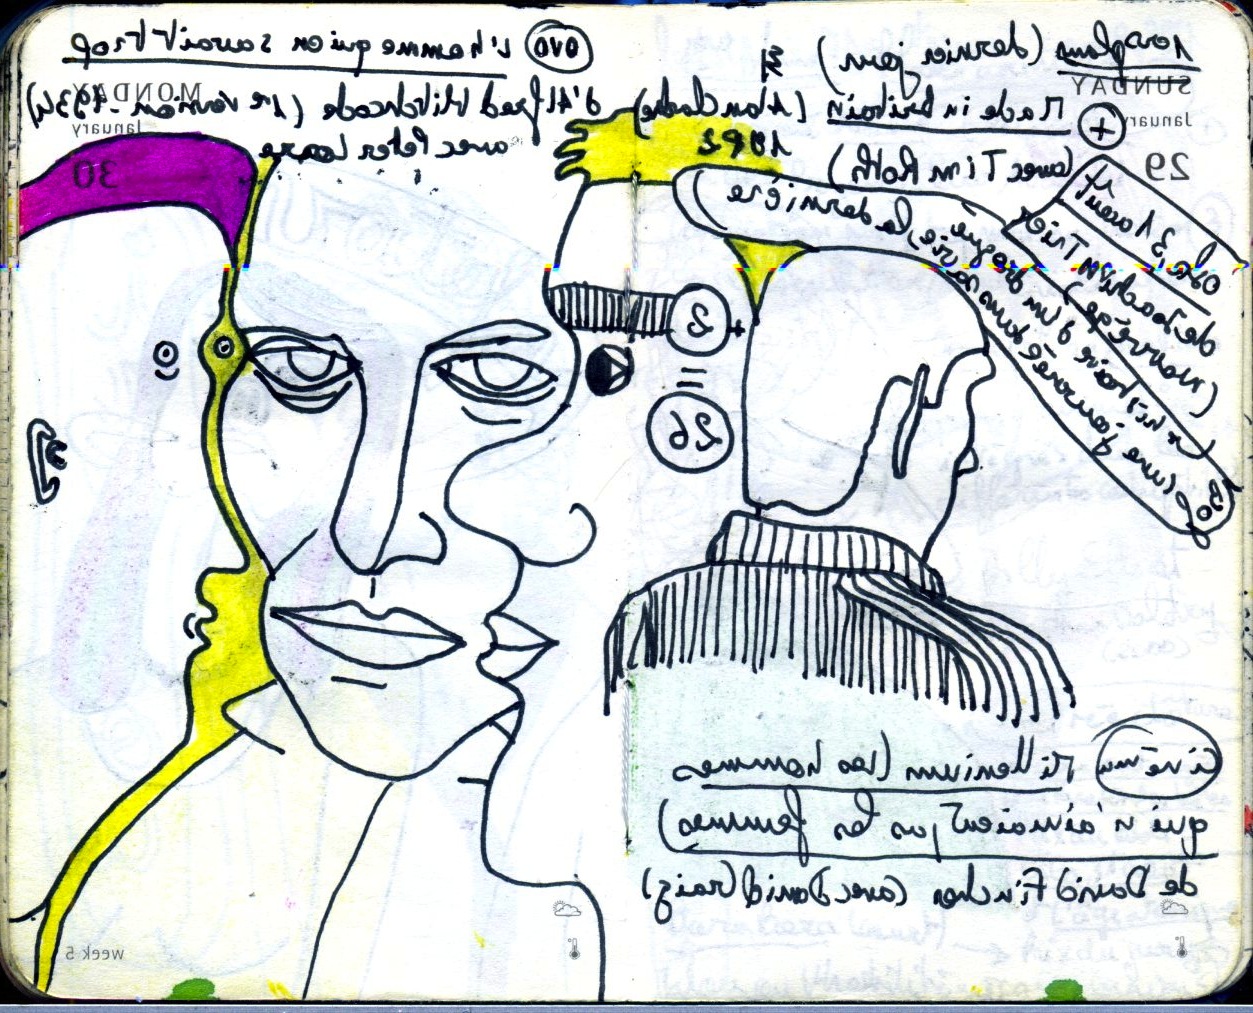 plans (dernier jour)
SUNDAY
January
29
+ Made in Britain (Alan Clarke)
1982
(avec Tim Roth)
Oslo, 31 août
de Joachim Trier
(Norvège)
(L'itinéraire d'un drogué, la dernière
d'une journée dans sa vie
3
=
26
Cinéma Millenium (les hommes
qui n'aimaient pas les femmes)
de David Fincher (avec Daniel Craig)
DVD L'homme qui en savait trop
MONDAY
January
30
d'Alfred Hitchcock (1re version - 1934)
avec Peter Lorre
week 5